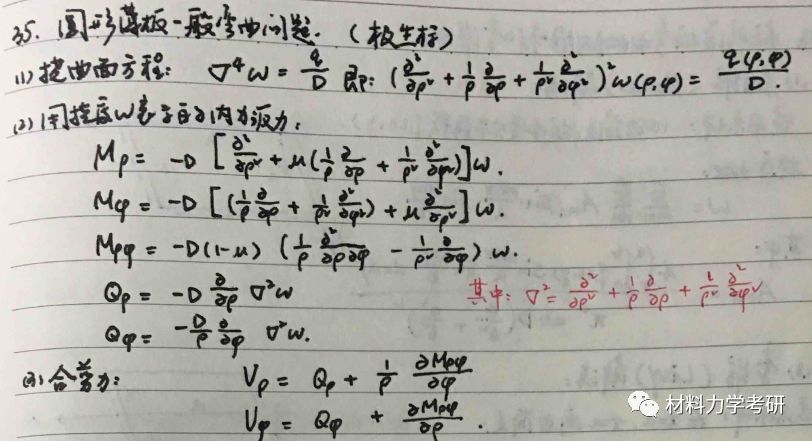 35. 圆形薄板一般弯曲问题. (极坐标)
(1) 挠曲面方程: ∇⁴w = q/D 即: (∂²/∂ρ² + 1/ρ ∂/∂ρ + 1/ρ² ∂²/∂φ²)² w(ρ,φ) = q(ρ,φ)/D.
(2) 用挠度w表示的内力:
Mρ = -D [∂²/∂ρ² + μ(1/ρ ∂/∂ρ + 1/ρ² ∂²/∂φ²)] w.
Mφ = -D [(1/ρ ∂/∂ρ + 1/ρ² ∂²/∂φ²) + μ ∂²/∂ρ²] w.
Mρφ = -D(1-μ) (1/ρ ∂²/∂ρ∂φ - 1/ρ² ∂/∂φ) w.
Qρ = -D ∂/∂ρ ∇²w 其中: ∇² = ∂²/∂ρ² + 1/ρ ∂/∂ρ + 1/ρ² ∂²/∂φ²
Qφ = -D/ρ ∂/∂φ ∇²w.
(3) 合剪力: Vρ = Qρ + 1/ρ ∂Mρφ/∂φ
Vφ = Qφ + ∂Mρφ/∂ρ.
材料力学考研